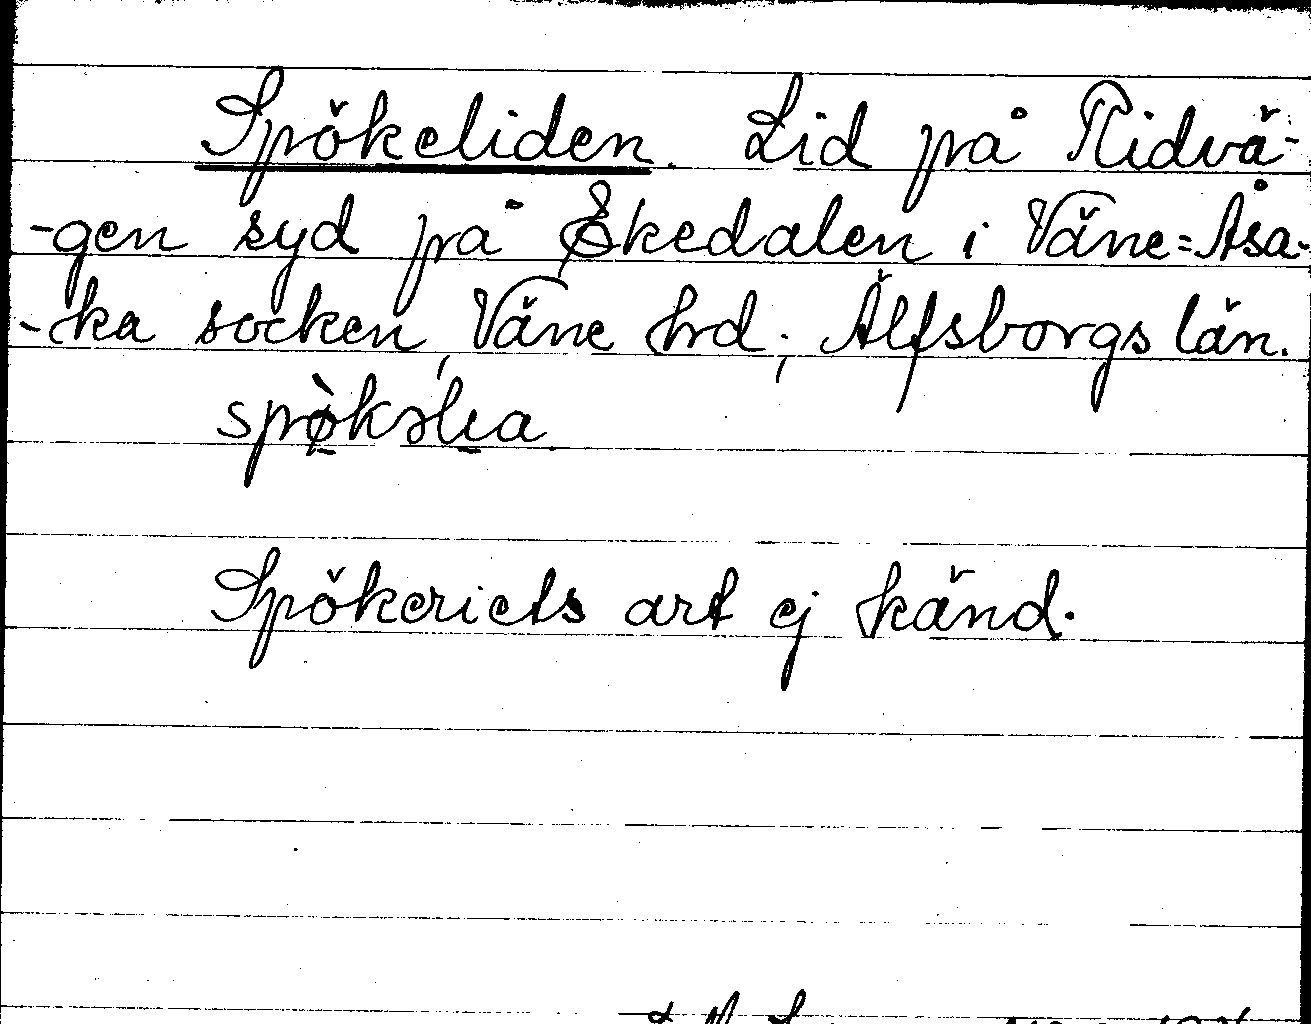 Spökeliden. Lid på Ridvä-
-gen syd på Ekedalen i Väne=Åsa-
-ka socken, Väne hrd; Älfsborgs län.
Spökeriets art ej känd.